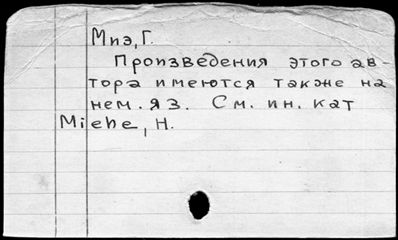 Миэ, Г.
Произведения этого ав-
тора имеются также на
нем. яз. См. ин. кат
Miehe, H.